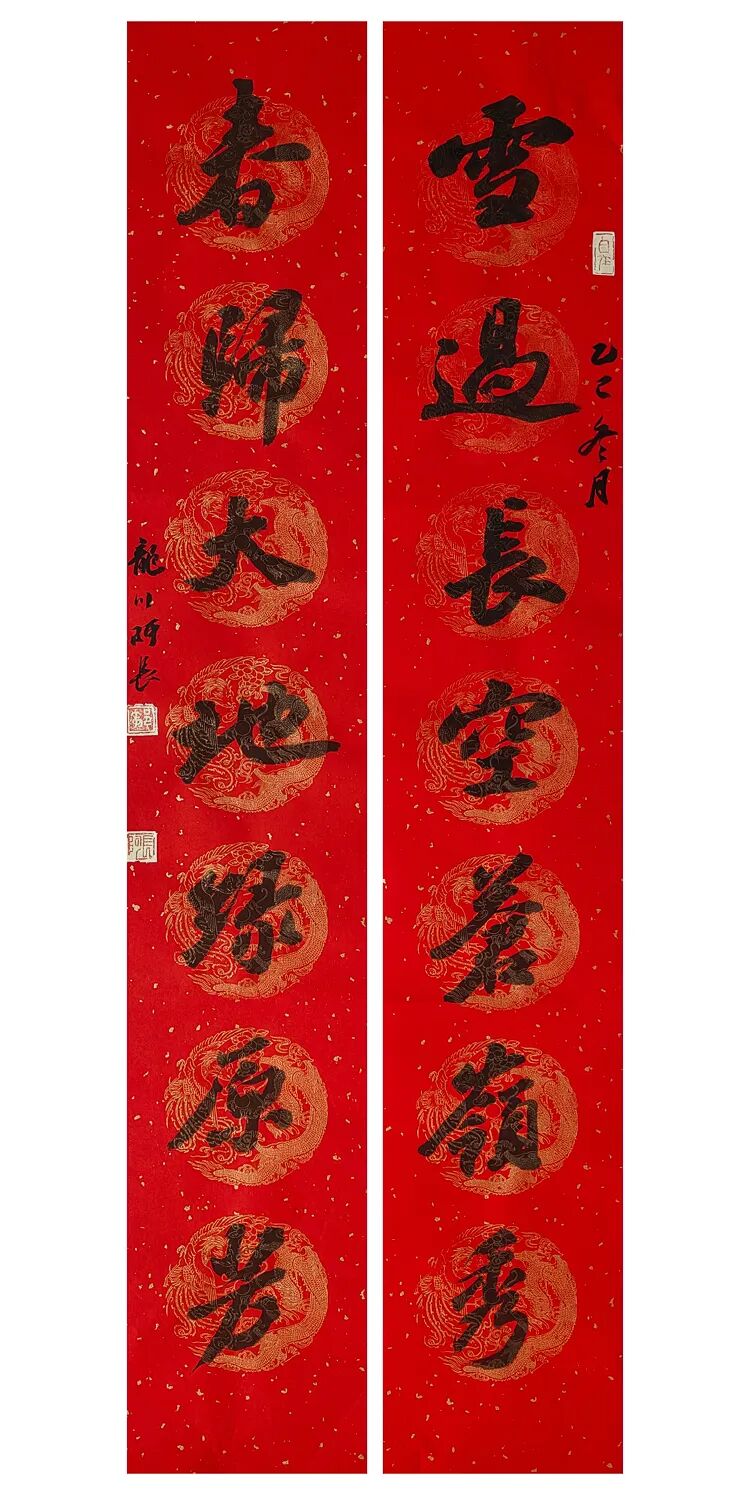 雪過長空蒼嶺秀
乙巳冬月
春歸大地綠原芳
龍川阿長